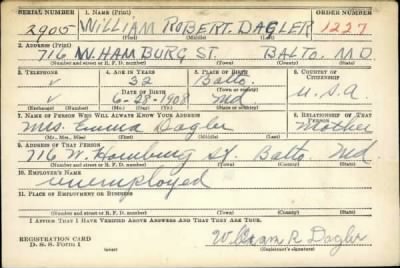 SERIAL NUMBER 1. NAME (Print) ORDER NUMBER
2905 WILLIAM ROBERT. DAGLER 1227
(First) (Middle) (Last)
2. ADDRESS (Print)
716 W. HAMBURG ST BALTO. MD
(Number and street or R. F. D. number) (Town) (County) (State)
3. TELEPHONE 4. AGE IN YEARS 5. PLACE OF BIRTH 6. COUNTRY OF CITIZENSHIP
32 Balto.
DATE OF BIRTH (Town or county)
6-28-1908 Md U.S.A
(Exchange) (Number) (Mo.) (Day) (Yr.) (State or country)
7. NAME OF PERSON WHO WILL ALWAYS KNOW YOUR ADDRESS 8. RELATIONSHIP OF THAT PERSON
Mrs. Emma Dagler Mother
(Mr., Mrs., Miss) (First) (Middle) (Last)
9. ADDRESS OF THAT PERSON
716 W. Hamburg St Balto Md
(Number and street or R. F. D. number) (Town) (County) (State)
10. EMPLOYER'S NAME
unemployed
11. PLACE OF EMPLOYMENT OR BUSINESS
(Number and street or R. F. D. number) (Town) (County) (State)
I AFFIRM THAT I HAVE VERIFIED ABOVE ANSWERS AND THAT THEY ARE TRUE.
REGISTRATION CARD
D. S. S. FORM 1 (over) William R Dagler
(Registrant's signature)